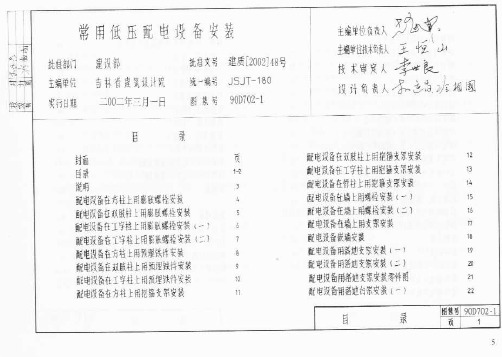 常用低压配电设备安装
批准部门 建设部 批准文号 建质[2002]48号
主编单位 吉林省建筑设计院 统一编号 JSJT-180
实行日期 二00二年三月一日 图集号 90D702-1
主编单位负责人
主编单位技术负责人 王恒山
技术审定人 李世良
设计负责人
目 录
封面 页
目录 1-2
说明 3
配电设备在方柱上用膨胀螺栓安装 4
配电设备在双肢柱上用膨胀螺栓安装 5
配电设备在工字柱上用膨胀螺栓安装(一) 6
配电设备在工字柱上用膨胀螺栓安装(二) 7
配电设备在方柱上用预埋铁件安装 8
配电设备在双肢柱上用预埋铁件安装 9
配电设备在工字柱上用预埋铁件安装 10
配电设备在方柱上用抱箍支架安装 11
配电设备在双肢柱上用抱箍支架安装 12
配电设备在工字柱上用抱箍支架安装 13
配电设备在管柱上用抱箍支架安装 14
配电设备在墙上用螺栓安装(一) 15
配电设备在墙上用螺栓安装(二) 16
配电设备在墙上用支架安装 17
配电设备嵌墙安装 18
配电设备用落地支架安装(一) 19
配电设备用落地支架安装(二) 20
配电设备用落地支架安装零件图 21
配电设备用落地台架安装(一) 22
目 录
图集号 90D702-1
页 1
5